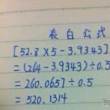 表白公式
[52.8×5-3.9343]÷0.5
=(264-3.9343)÷0.5
=260.0657÷0.5
=520.1314